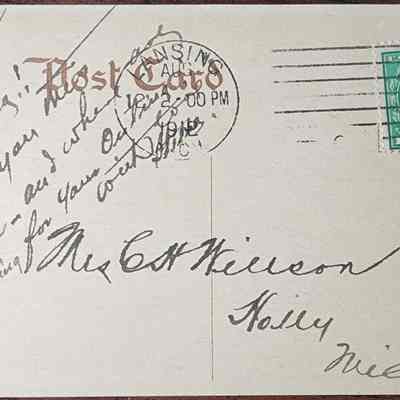 Post Card
LANSING
AUG
12
2:00 PM
1912
MICH
ng!!
you me
and when are
for your outing
with
Mrs C H Willson
Holly
Mic